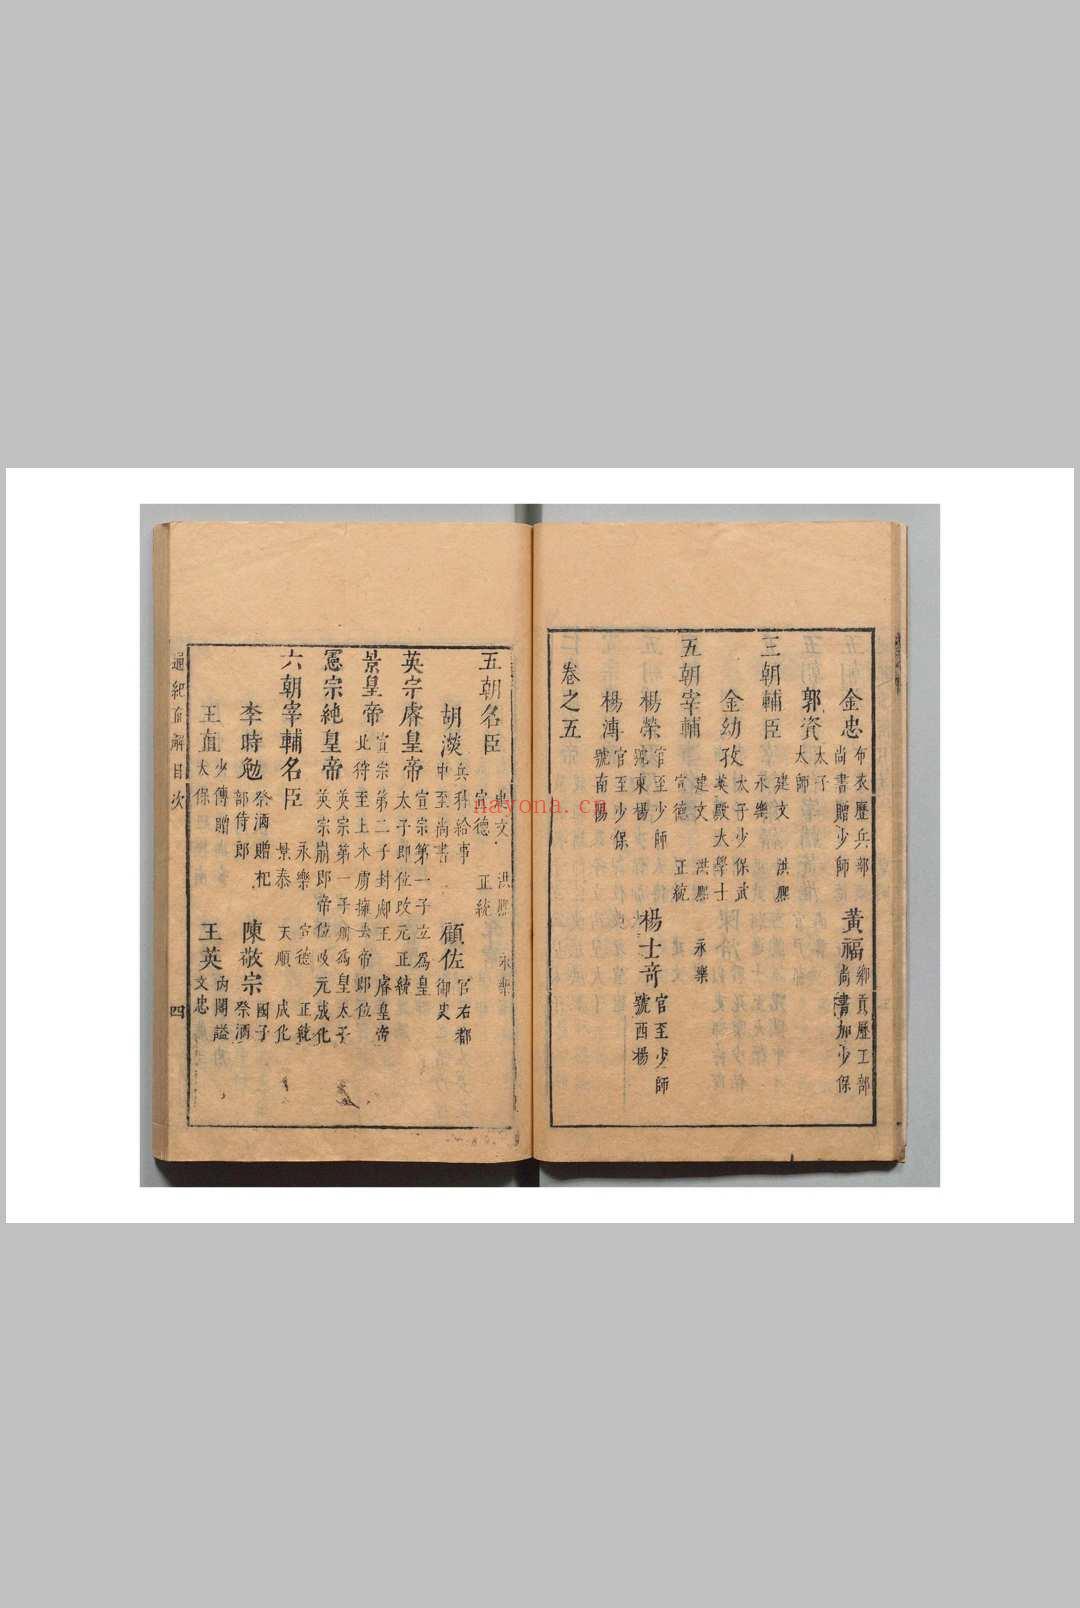 金忠 布衣歷兵部尚書贈少師 黃福 鄉貢歷工部尚書加少保
郭資 太子太師
三朝輔臣 建文 洪熙 永樂
金幼孜 太子少保武英殿大學士
五朝宰輔 建文 洪熙 永樂 宣德 正統
楊榮 官至少師號東楊 楊士奇 官至少師號西楊
楊溥 官至少保號南陽
卷之五
五朝名臣 建文 洪熙 永樂 宣德 正統
胡濙 兵科給事中至尚書 顧佐 官右都御史
英宗睿皇帝 宣宗第一子立為皇太子即位改元正統
景皇帝 宣宗第二子封郕王睿皇帝北狩至上木虜擁去帝即位
憲宗純皇帝 英宗第一子冊為皇太子英宗崩即帝位改元成化
六朝宰輔名臣 永樂 宣德 正統 景泰 天順 成化
李時勉 祭酒贈禮部侍郎 陳敬宗 國子祭酒
王直 少傅贈太保 王英 內閣謚文忠
通紀直解目次 四
nayona.cn